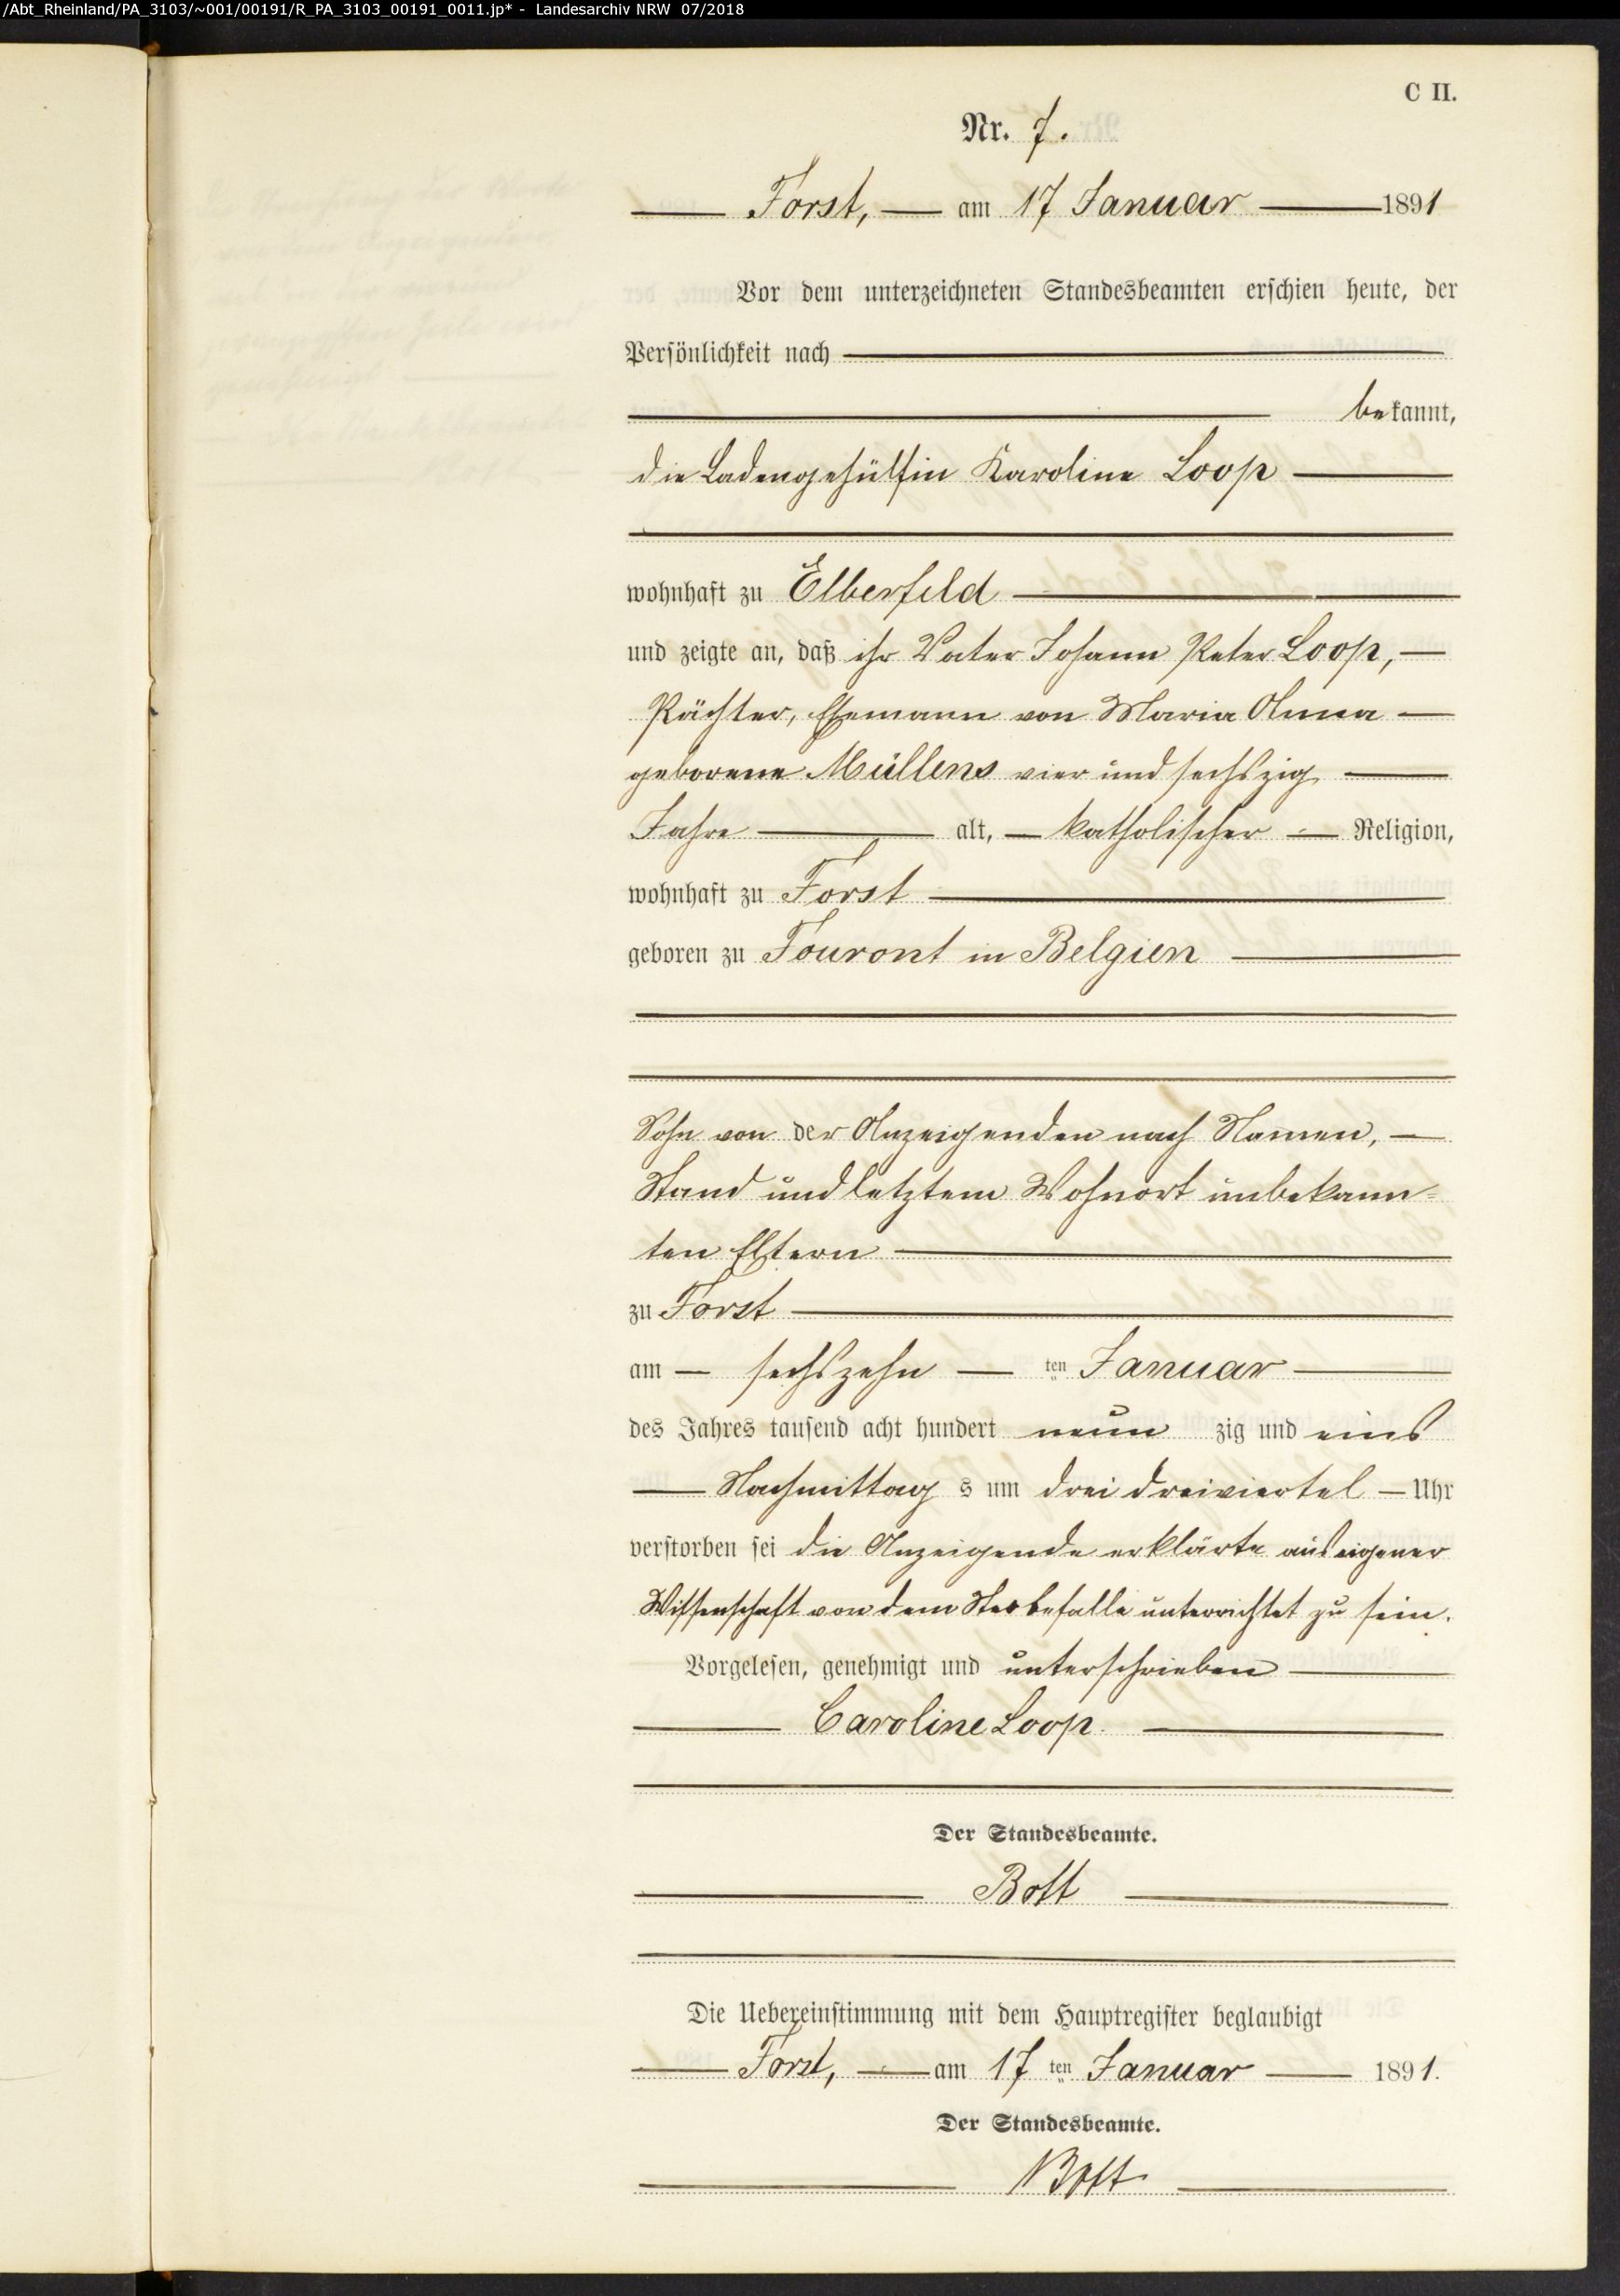 /Abt_Rheinland/PA_3103/~001/00191/R_PA_3103_00191_0011.jp* - Landesarchiv NRW 07/2018
C II.
Nr. 7.
Forst, am 17 Januar 1891
Vor dem unterzeichneten Standesbeamten erschien heute, der
Persönlichkeit nach
bekannt,
die Ladengehülfin Karoline Loop
wohnhaft zu Elberfeld
und zeigte an, daß ihr Vater Johann Peter Loop,
Pächter, Ehemann von Maria Anna
geborene Müllens vier und sechszig
Jahre alt, katholischer Religion,
wohnhaft zu Forst
geboren zu Touront in Belgien
Sohn von der Anzeigenden nach Namen,
Stand und letztem Wohnort unbekann-
ten Eltern
zu Forst
am sechszehn ten Januar
des Jahres tausend acht hundert neun zig und eins
Nachmittag s um drei dreiviertel Uhr
verstorben sei die Anzeigende erklärte aus eigener
Wissenschaft von dem Sterbefalle unterrichtet zu sein.
Vorgelesen, genehmigt und unterschrieben
Caroline Loop.
Der Standesbeamte.
Bott
Die Uebereinstimmung mit dem Hauptregister beglaubigt
Forst, am 17 ten Januar 1891.
Der Standesbeamte.
Bott